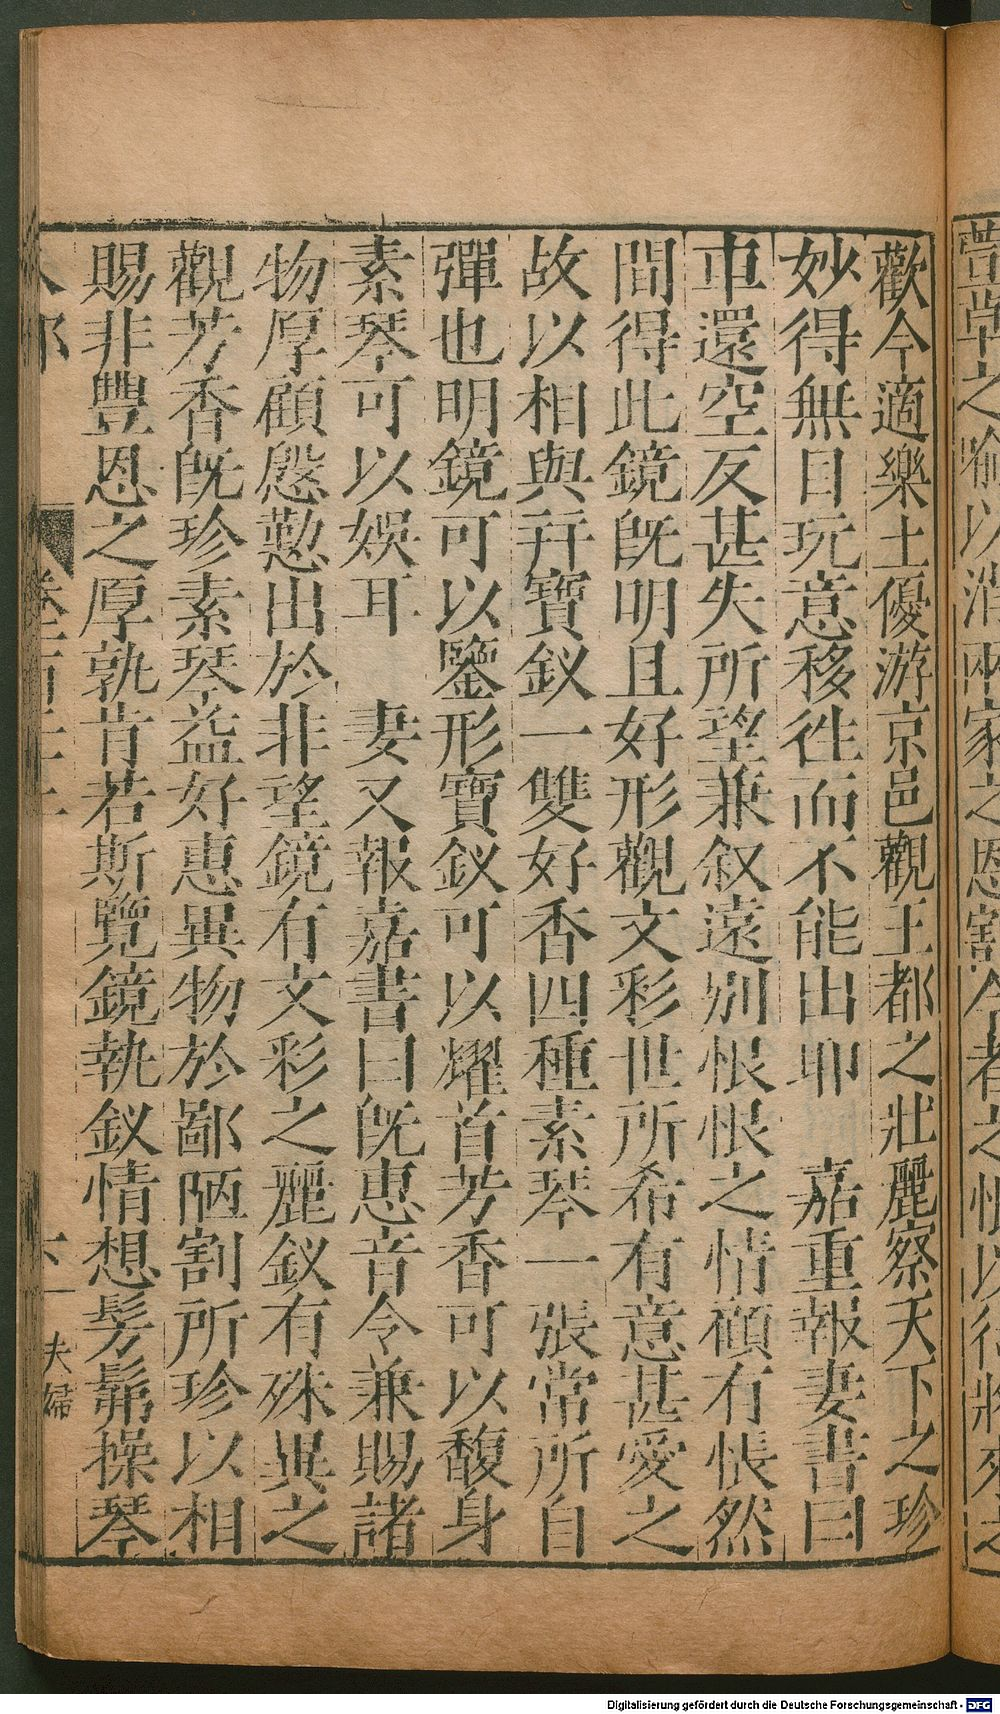 歡今適樂土優游京邑觀王都之壯麗察天下之珍
妙得無目玩意移徃而不能出耶　嘉重報妻書曰
車還空反甚失所望兼叙遠別恨恨之情顧有悵然
間得此鏡旣明且好形觀文彩世所希有意甚愛之
故以相與幷寶釵一雙好香四種素琴一張常所自
彈也明鏡可以鑒形寶釵可以耀首芳香可以馥身
素琴可以娛耳　妻又報嘉書曰旣惠音令兼賜諸
物厚顧慇懃出於非望鏡有文彩之麗釵有殊異之
觀芳香旣珍素琴益好惠異物於鄙陋割所珍以相
賜非豐恩之厚孰肯若斯覽鏡執釵情想髣髴操琴
夫婦
之喻以消兩家之恩割今者之恨以待將來之
Digitalisierung gefördert durch die Deutsche Forschungsgemeinschaft - DFG